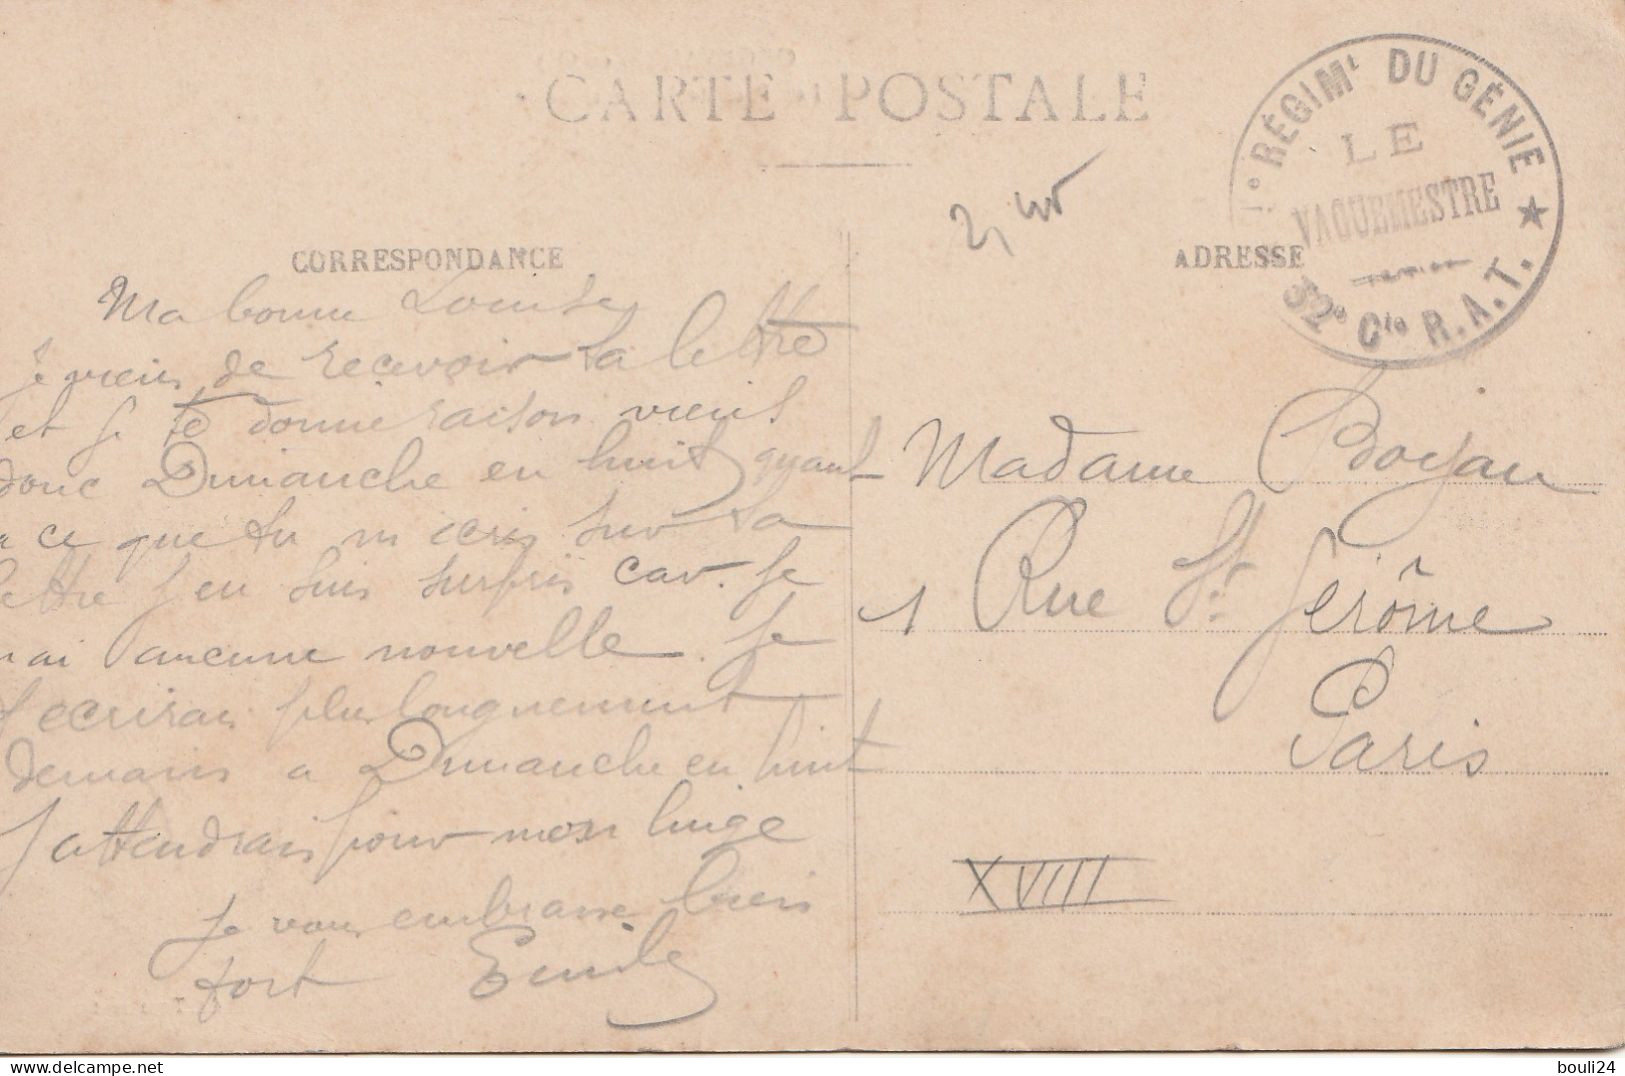 CARTE POSTALE
1e RÉGIMt DU GÉNIE
LE
VAGUEMESTRE
32e Cie R.A.T.
CORRESPONDANCE
ADRESSE
Ma bonne Louise
Je viens de recevoir ta lettre
et je te donne raison viens
donc Dimanche en huit quant
a ce que tu m ecris sur ta
lettre j en suis surpris car je
n ai aucune nouvelle. Je
t ecrirai plus longuement
demain a Dimanche en huit
J attendrai pour mon linge
Je vous embrasse bien
fort Emile
Madame Boyau
1 Rue St. Jérôme
Paris
XVIII
bouli24